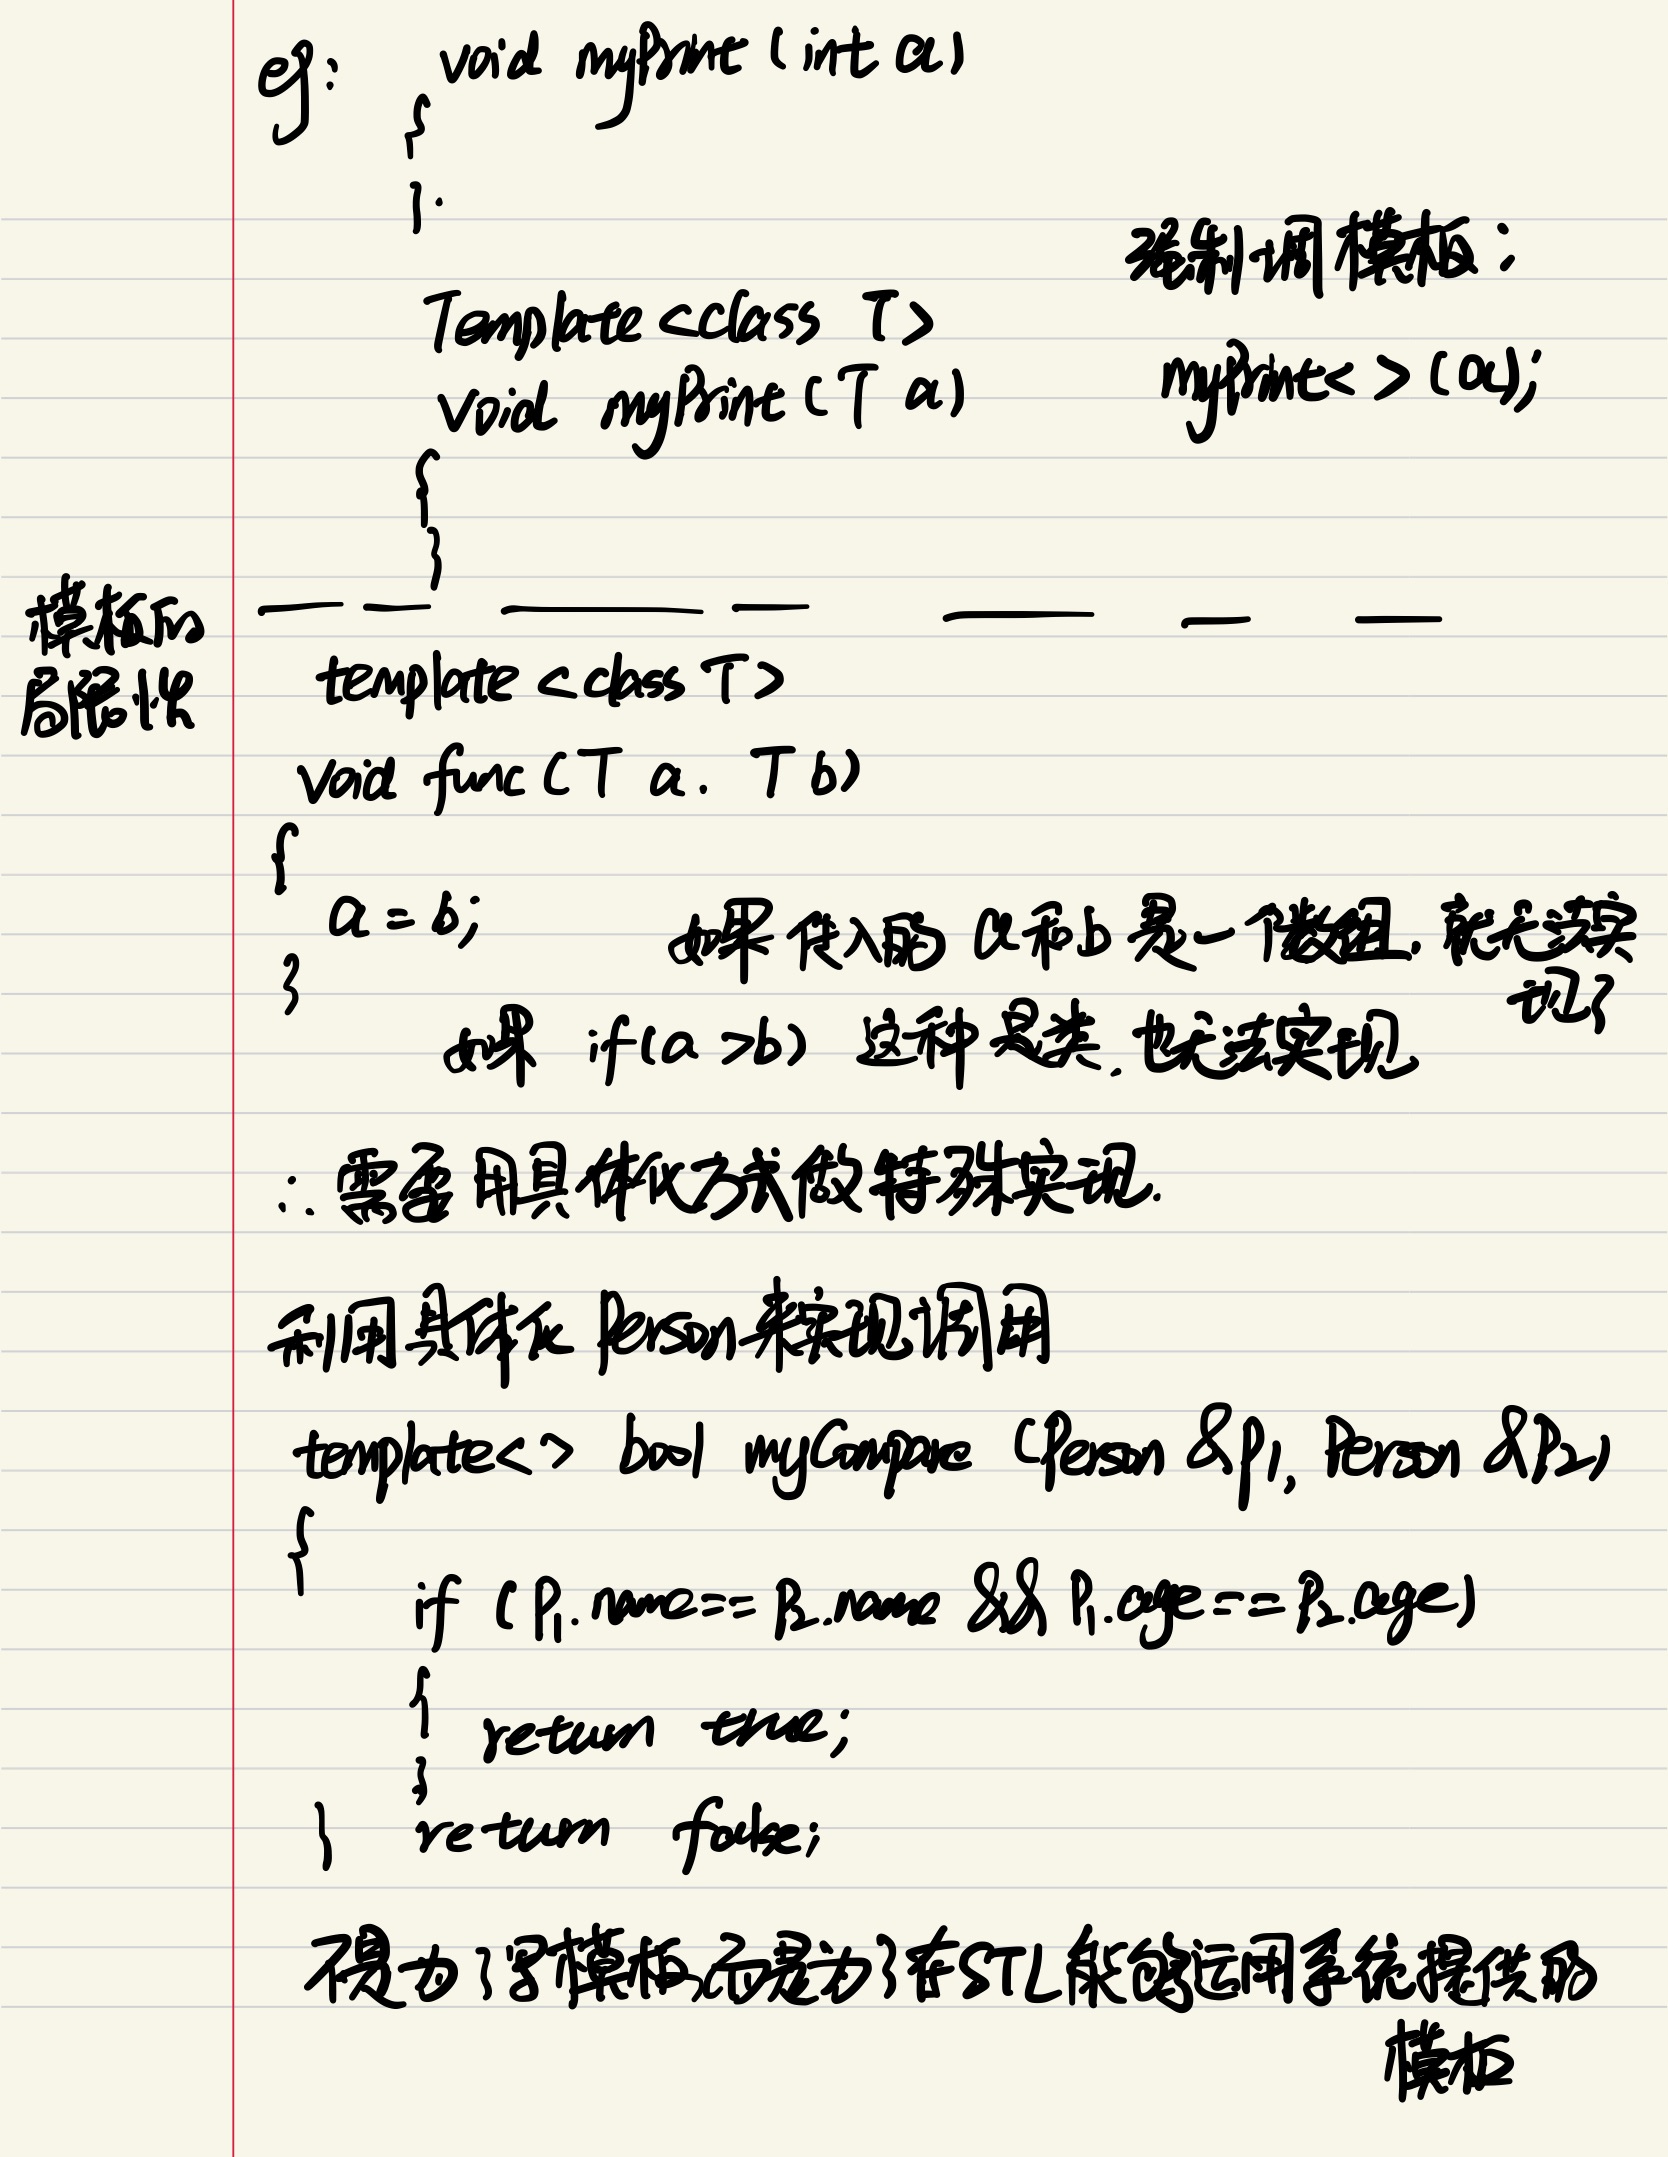 eg: void myPrint (int a)
{
}.
强制调模板:
Template <class T>
myPrint< > (a);
void myPrint (T a)
{
}
模板的
局限性
template <class T>
void func (T a. T b)
{
a = b;
如果传入的 a 和 b 是一个数组. 就无法实
现了
}
如果 if(a >b) 这种是类. 也无法实现
∴ 需要用具体化方式做特殊实现.
利用具体化 Person来实现调用
template< > bool myCompare (Person &p1, Person &P2)
{
if (P1.name== P2.name && P1.age== P2.age)
{
return true;
}
} return false;
不是为了写模板,而是为了在STL能够运用系统提供的
模板